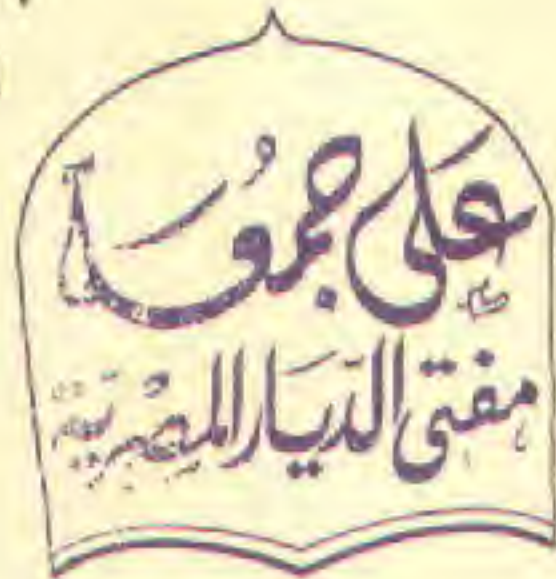 على جمعة
مفتي الديار المصرية